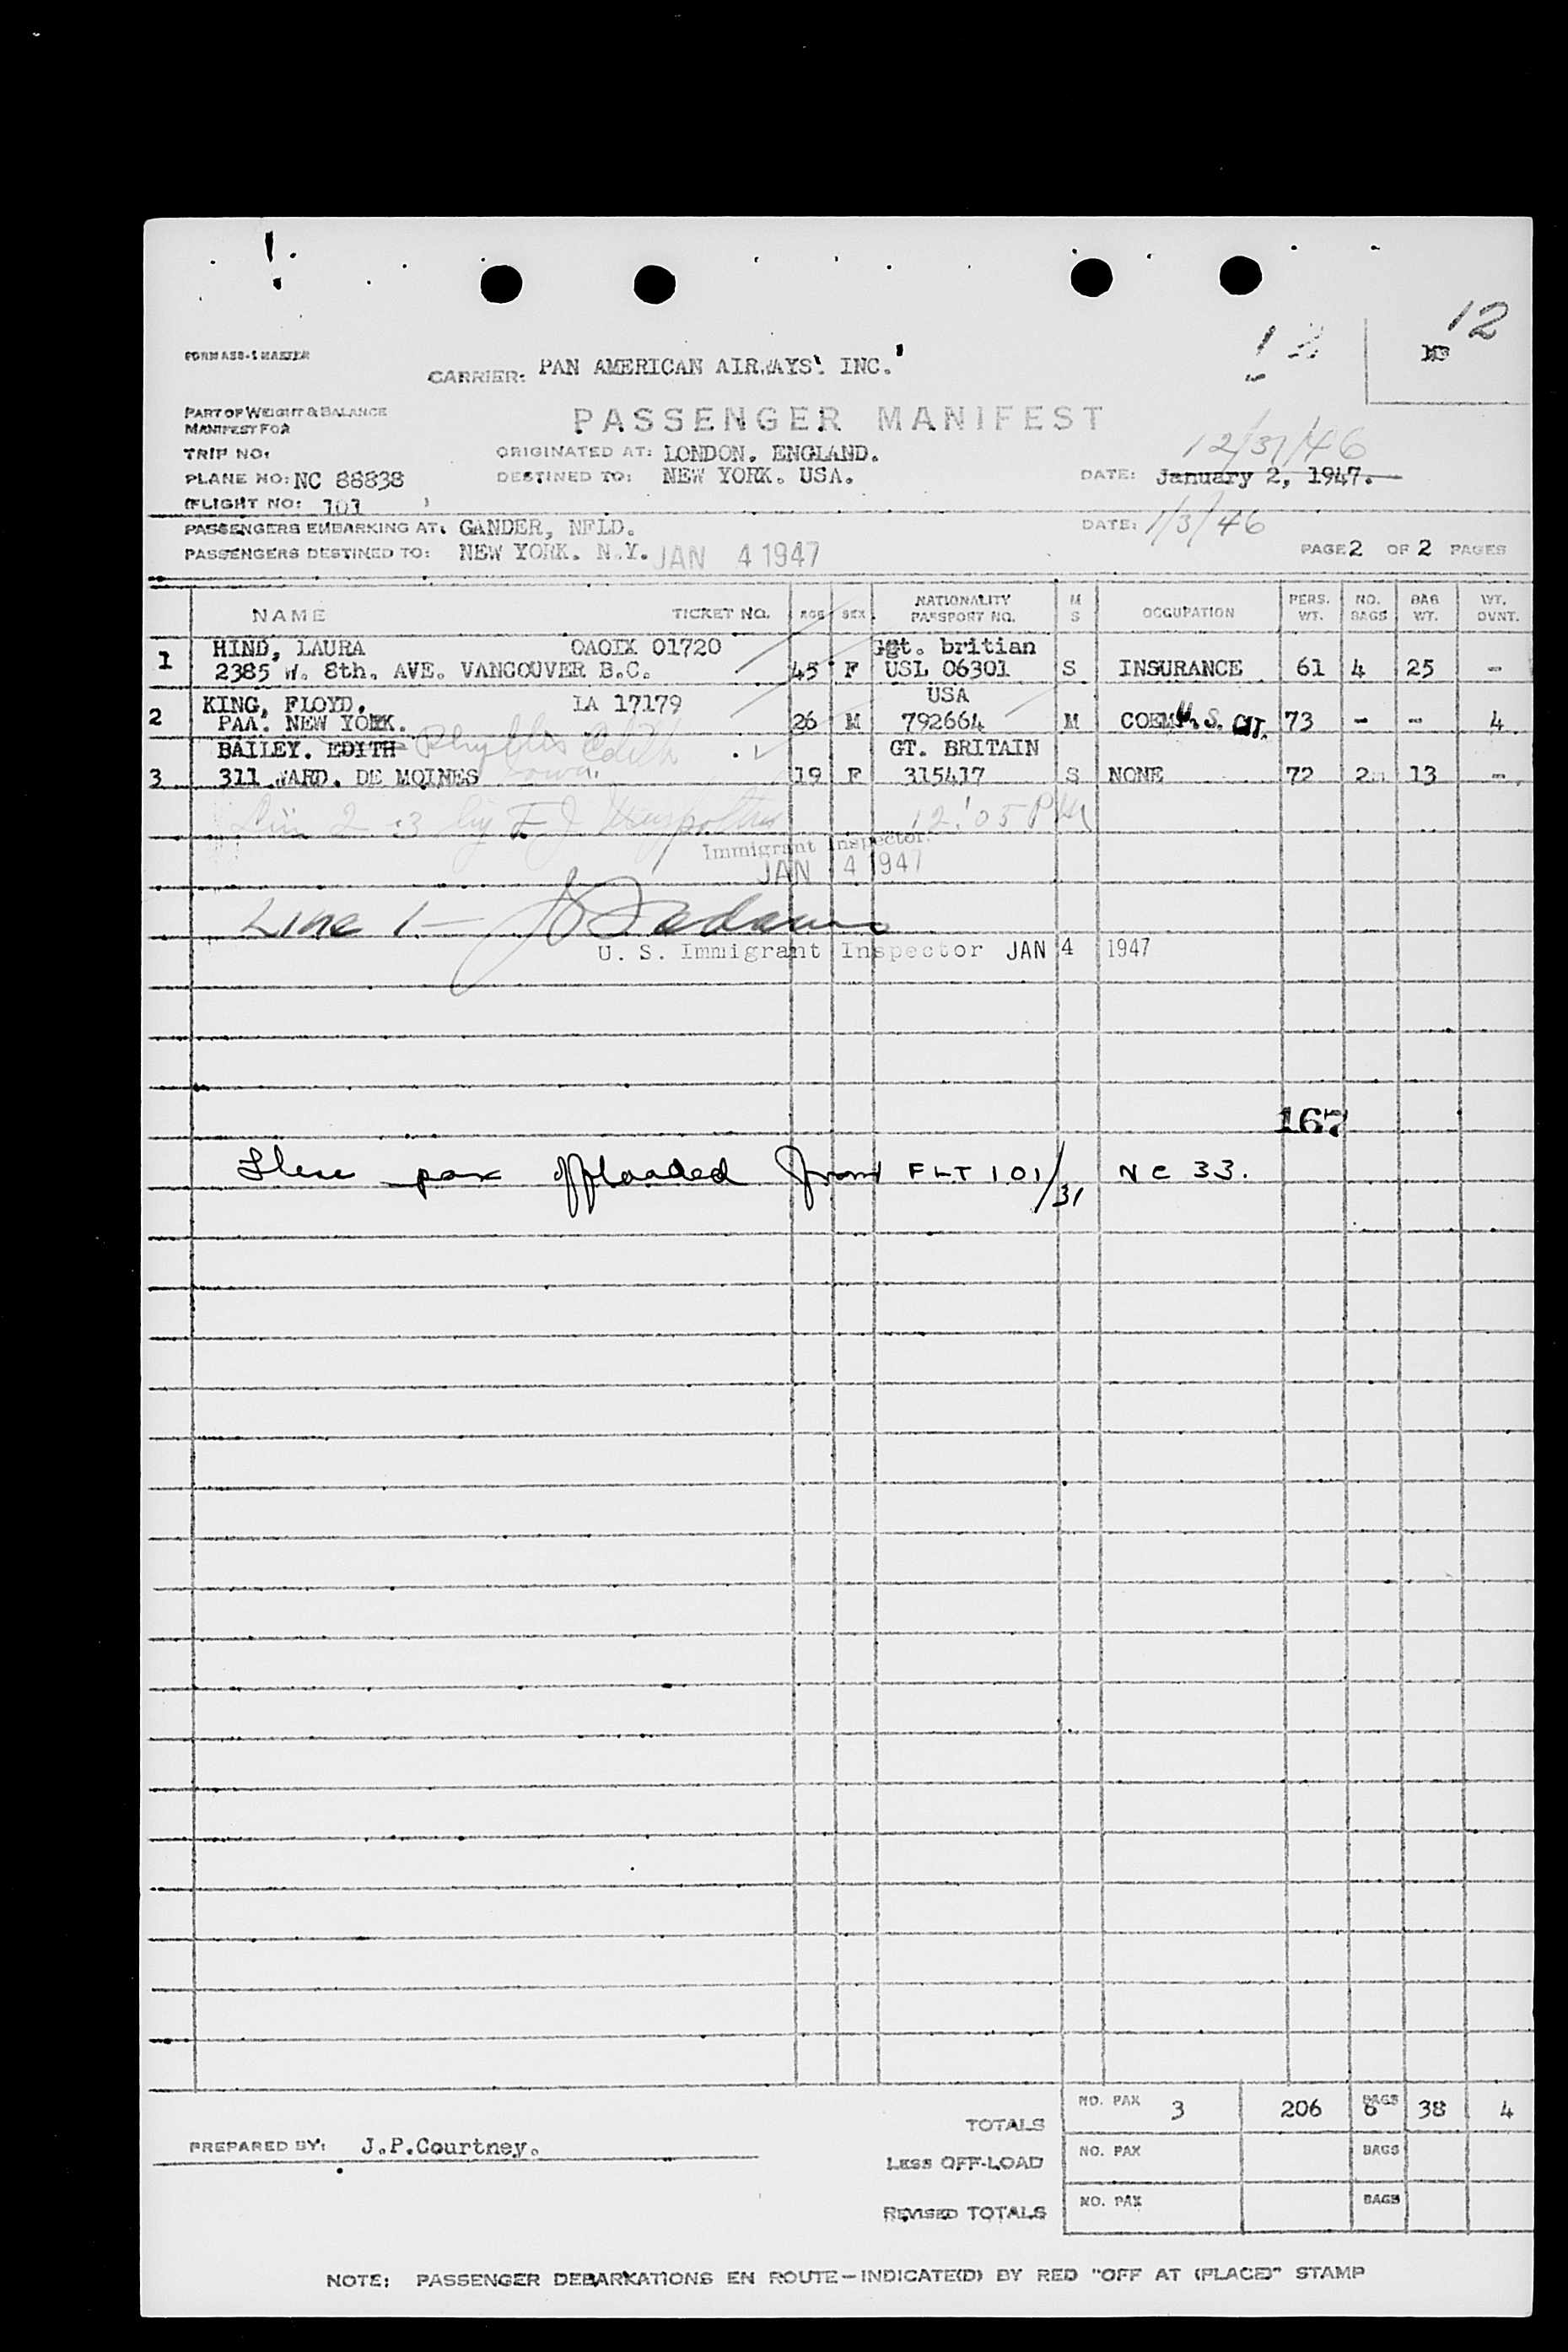 12
12
NO
FORM ASB-1 MASTER
CARRIER: PAN AMERICAN AIRWAYS. INC.
PART OF WEIGHT & BALANCE
MANIFEST FOR
PASSENGER MANIFEST
12/31/46
TRIP NO:
ORIGINATED AT: LONDON. ENGLAND.
PLANE NO: NC 88838
DESTINED TO: NEW YORK. USA.
DATE: January 2, 1947.
(FLIGHT NO: 101 )
PASSENGERS EMBARKING AT: GANDER, NFLD.
DATE: 1/3/46
PASSENGERS DESTINED TO: NEW YORK. N.Y. JAN 4 1947
PAGE 2 OF 2 PAGES
NAME TICKET NO. AGE SEX NATIONALITY PASSPORT NO. M S OCCUPATION PERS. WT. NO. BAGS BAG WT. WT. OVNT.
HIND, LAURA OAOIX 01720 Ggt. britian
1 2385 W. 8th. AVE. VANCOUVER B.C. 45 F USL 06301 S INSURANCE 61 4 25 -
KING, FLOYD. LA 17179 USA
2 PAA. NEW YORK. 26 M 792664 M U.S. CIT. 73 - - 4
BAILEY. EDITH Phyllis Edith GT. BRITAIN
3 311 WARD. DE MOINES Iowa. 19 F 315417 S NONE 72 2 13 -
Line 2-3 by F J 12:05 PM
Immigrant Inspector.
JAN 4 1947
Line 1 –
U. S. Immigrant Inspector JAN 4 1947
167
These pax offloaded from FLT 101/31 NC 33.
TOTALS NO. PAX 3 206 BAGS 6 38 4
PREPARED BY: J.P.Courtney.
LESS OFF-LOAD NO. PAX BAGS
REVISED TOTALS NO. PAX BAGS
NOTE: PASSENGER DEBARKATIONS EN ROUTE—INDICATE(D) BY RED "OFF AT (PLACE)" STAMP